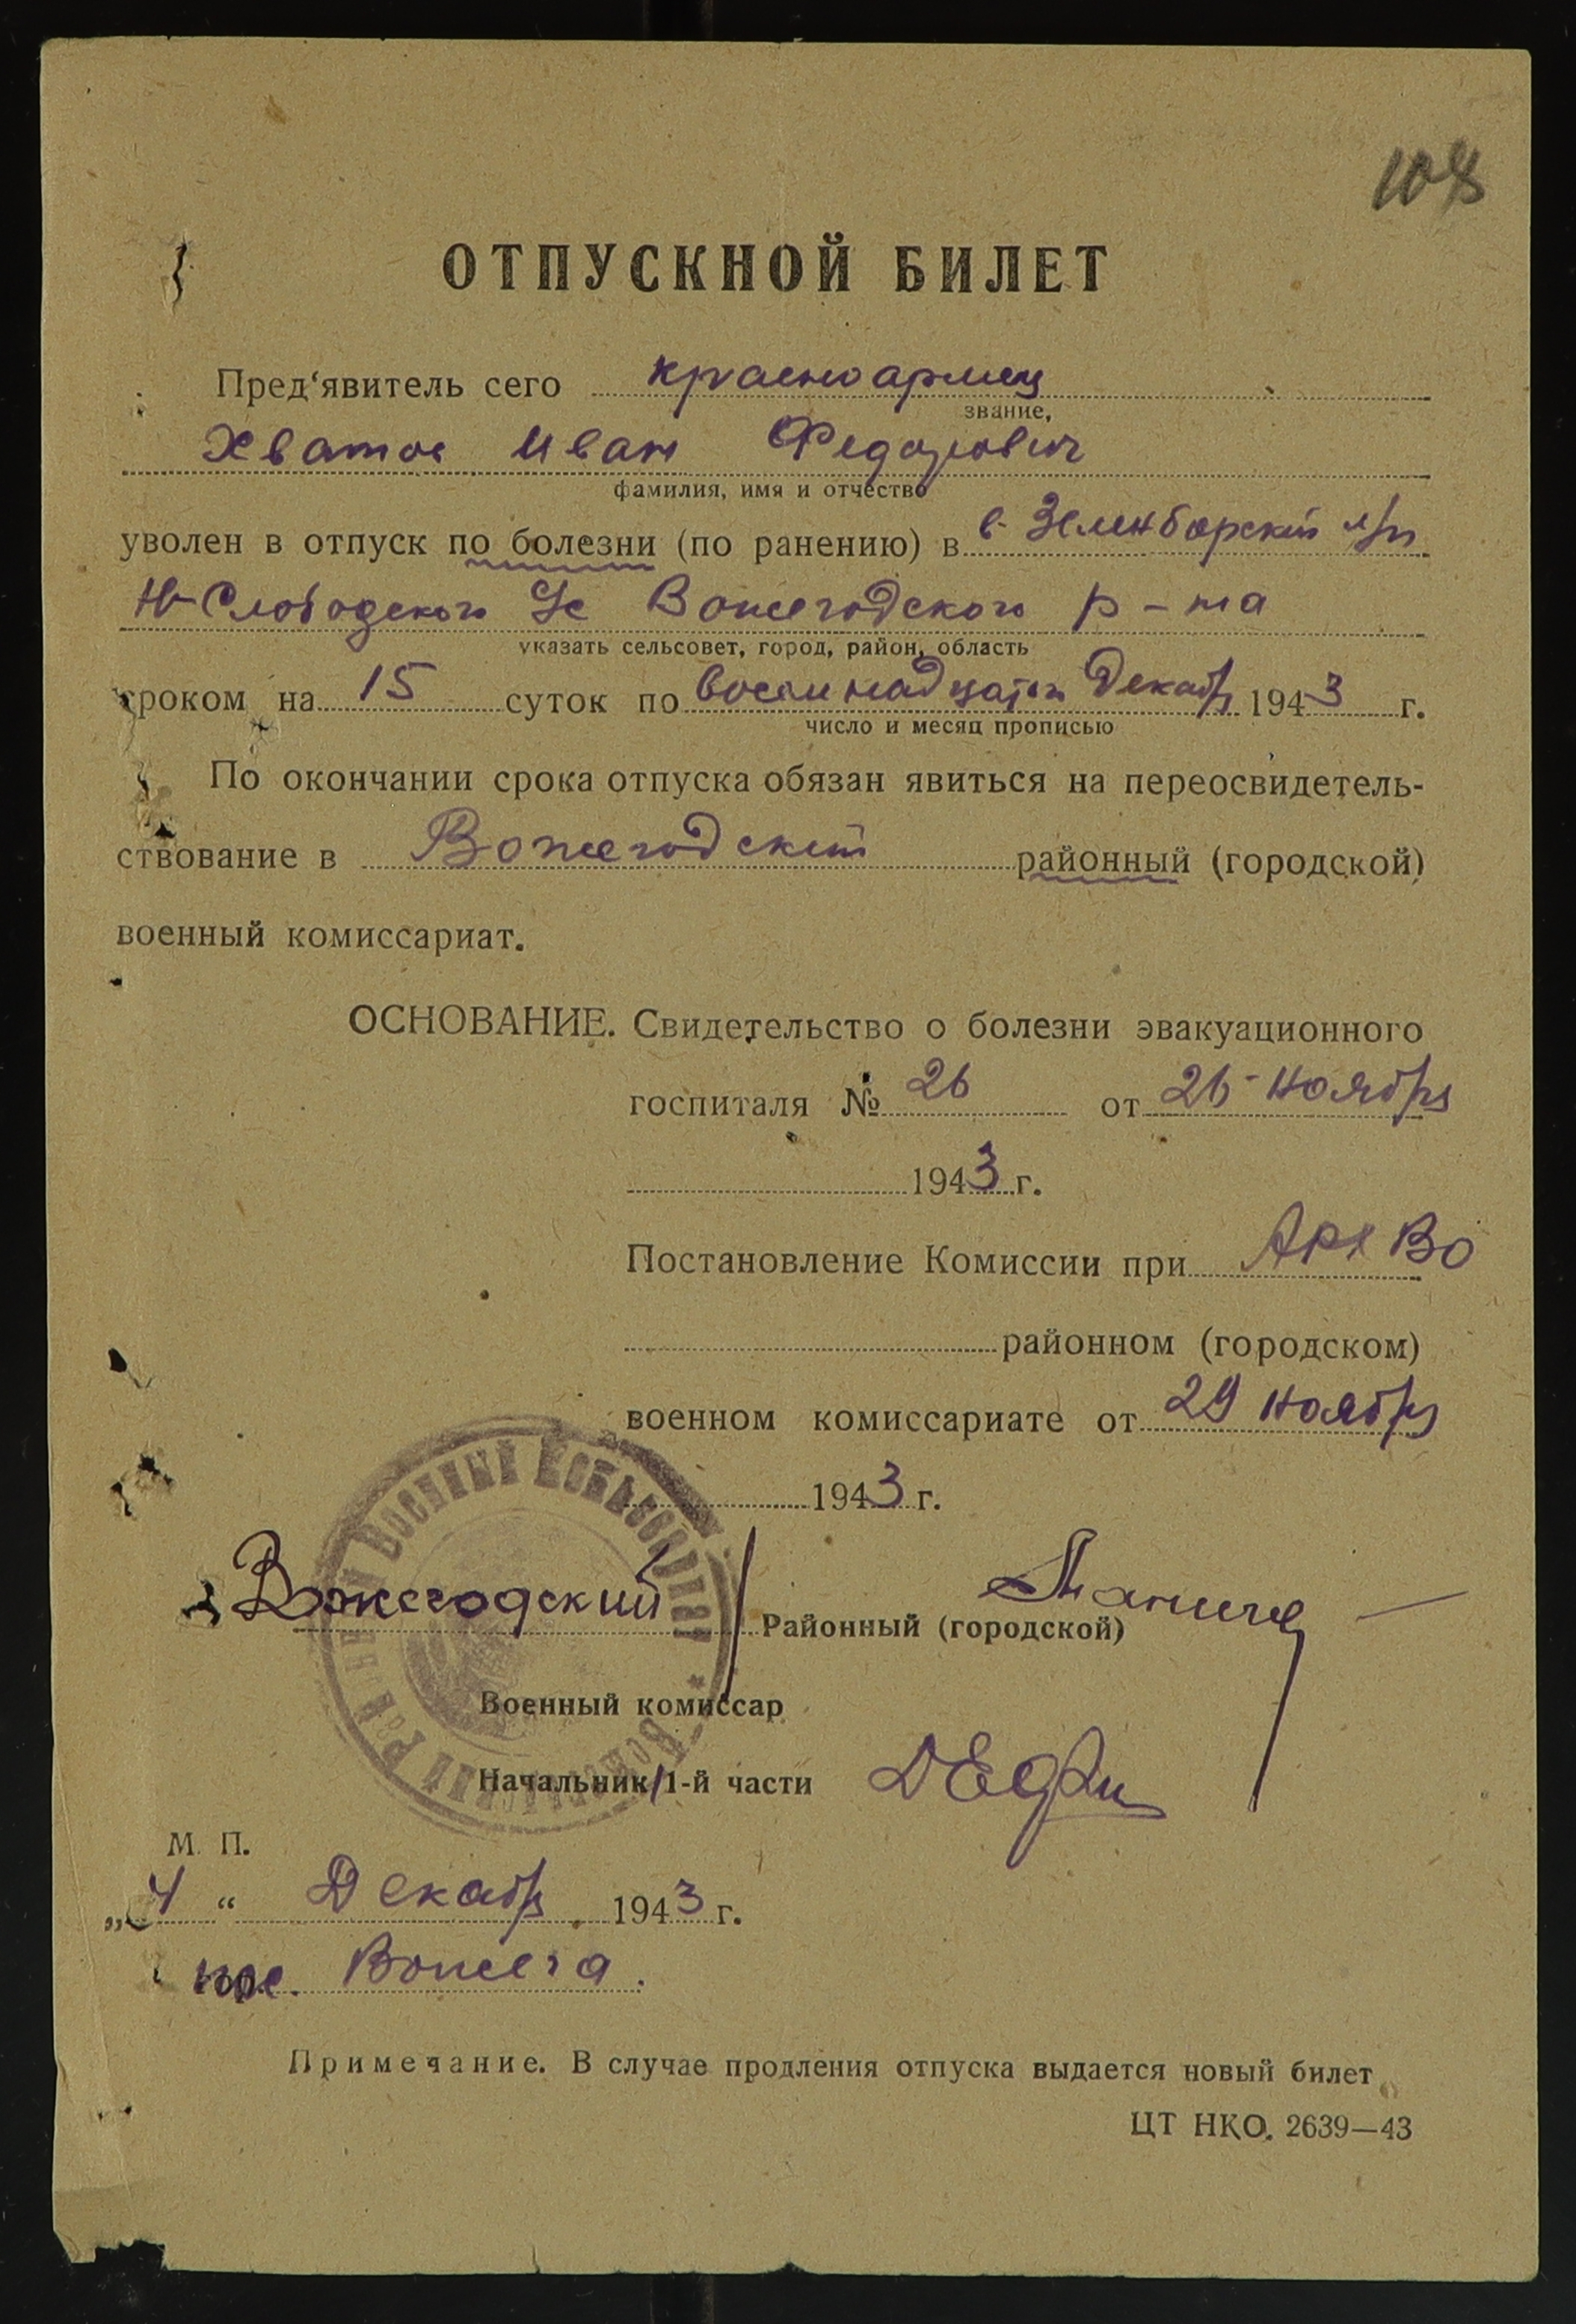 108
ОТПУСКНОЙ БИЛЕТ
Пред‘явитель сего красноармец
звание,
Хватов Иван Федорович
фамилия, имя и отчество
уволен в отпуск по болезни (по ранению) в
Н-Слободского Вожегодского р-на
указать сельсовет, город, район, область
сроком на 15 суток по восемнадцатое Декабр 1943 г.
число и месяц прописью
По окончании срока отпуска обязан явиться на переосвидетель-
ствование в Вожегодский районный (городской)
военный комиссариат.
ОСНОВАНИЕ. Свидетельство о болезни эвакуационного
госпиталя № 26 от 26 ноября
1943 г.
Постановление Комиссии при Арх ВО
районном (городском)
военном комиссариате от 29 ноября
1943 г.
Вожегодский Районный (городской)
Военный комиссар
Начальник 1-й части
М. П.
„4“ Декабр 1943 г.
Вожега.
Примечание. В случае продления отпуска выдается новый билет
ЦТ НКО. 2639—43